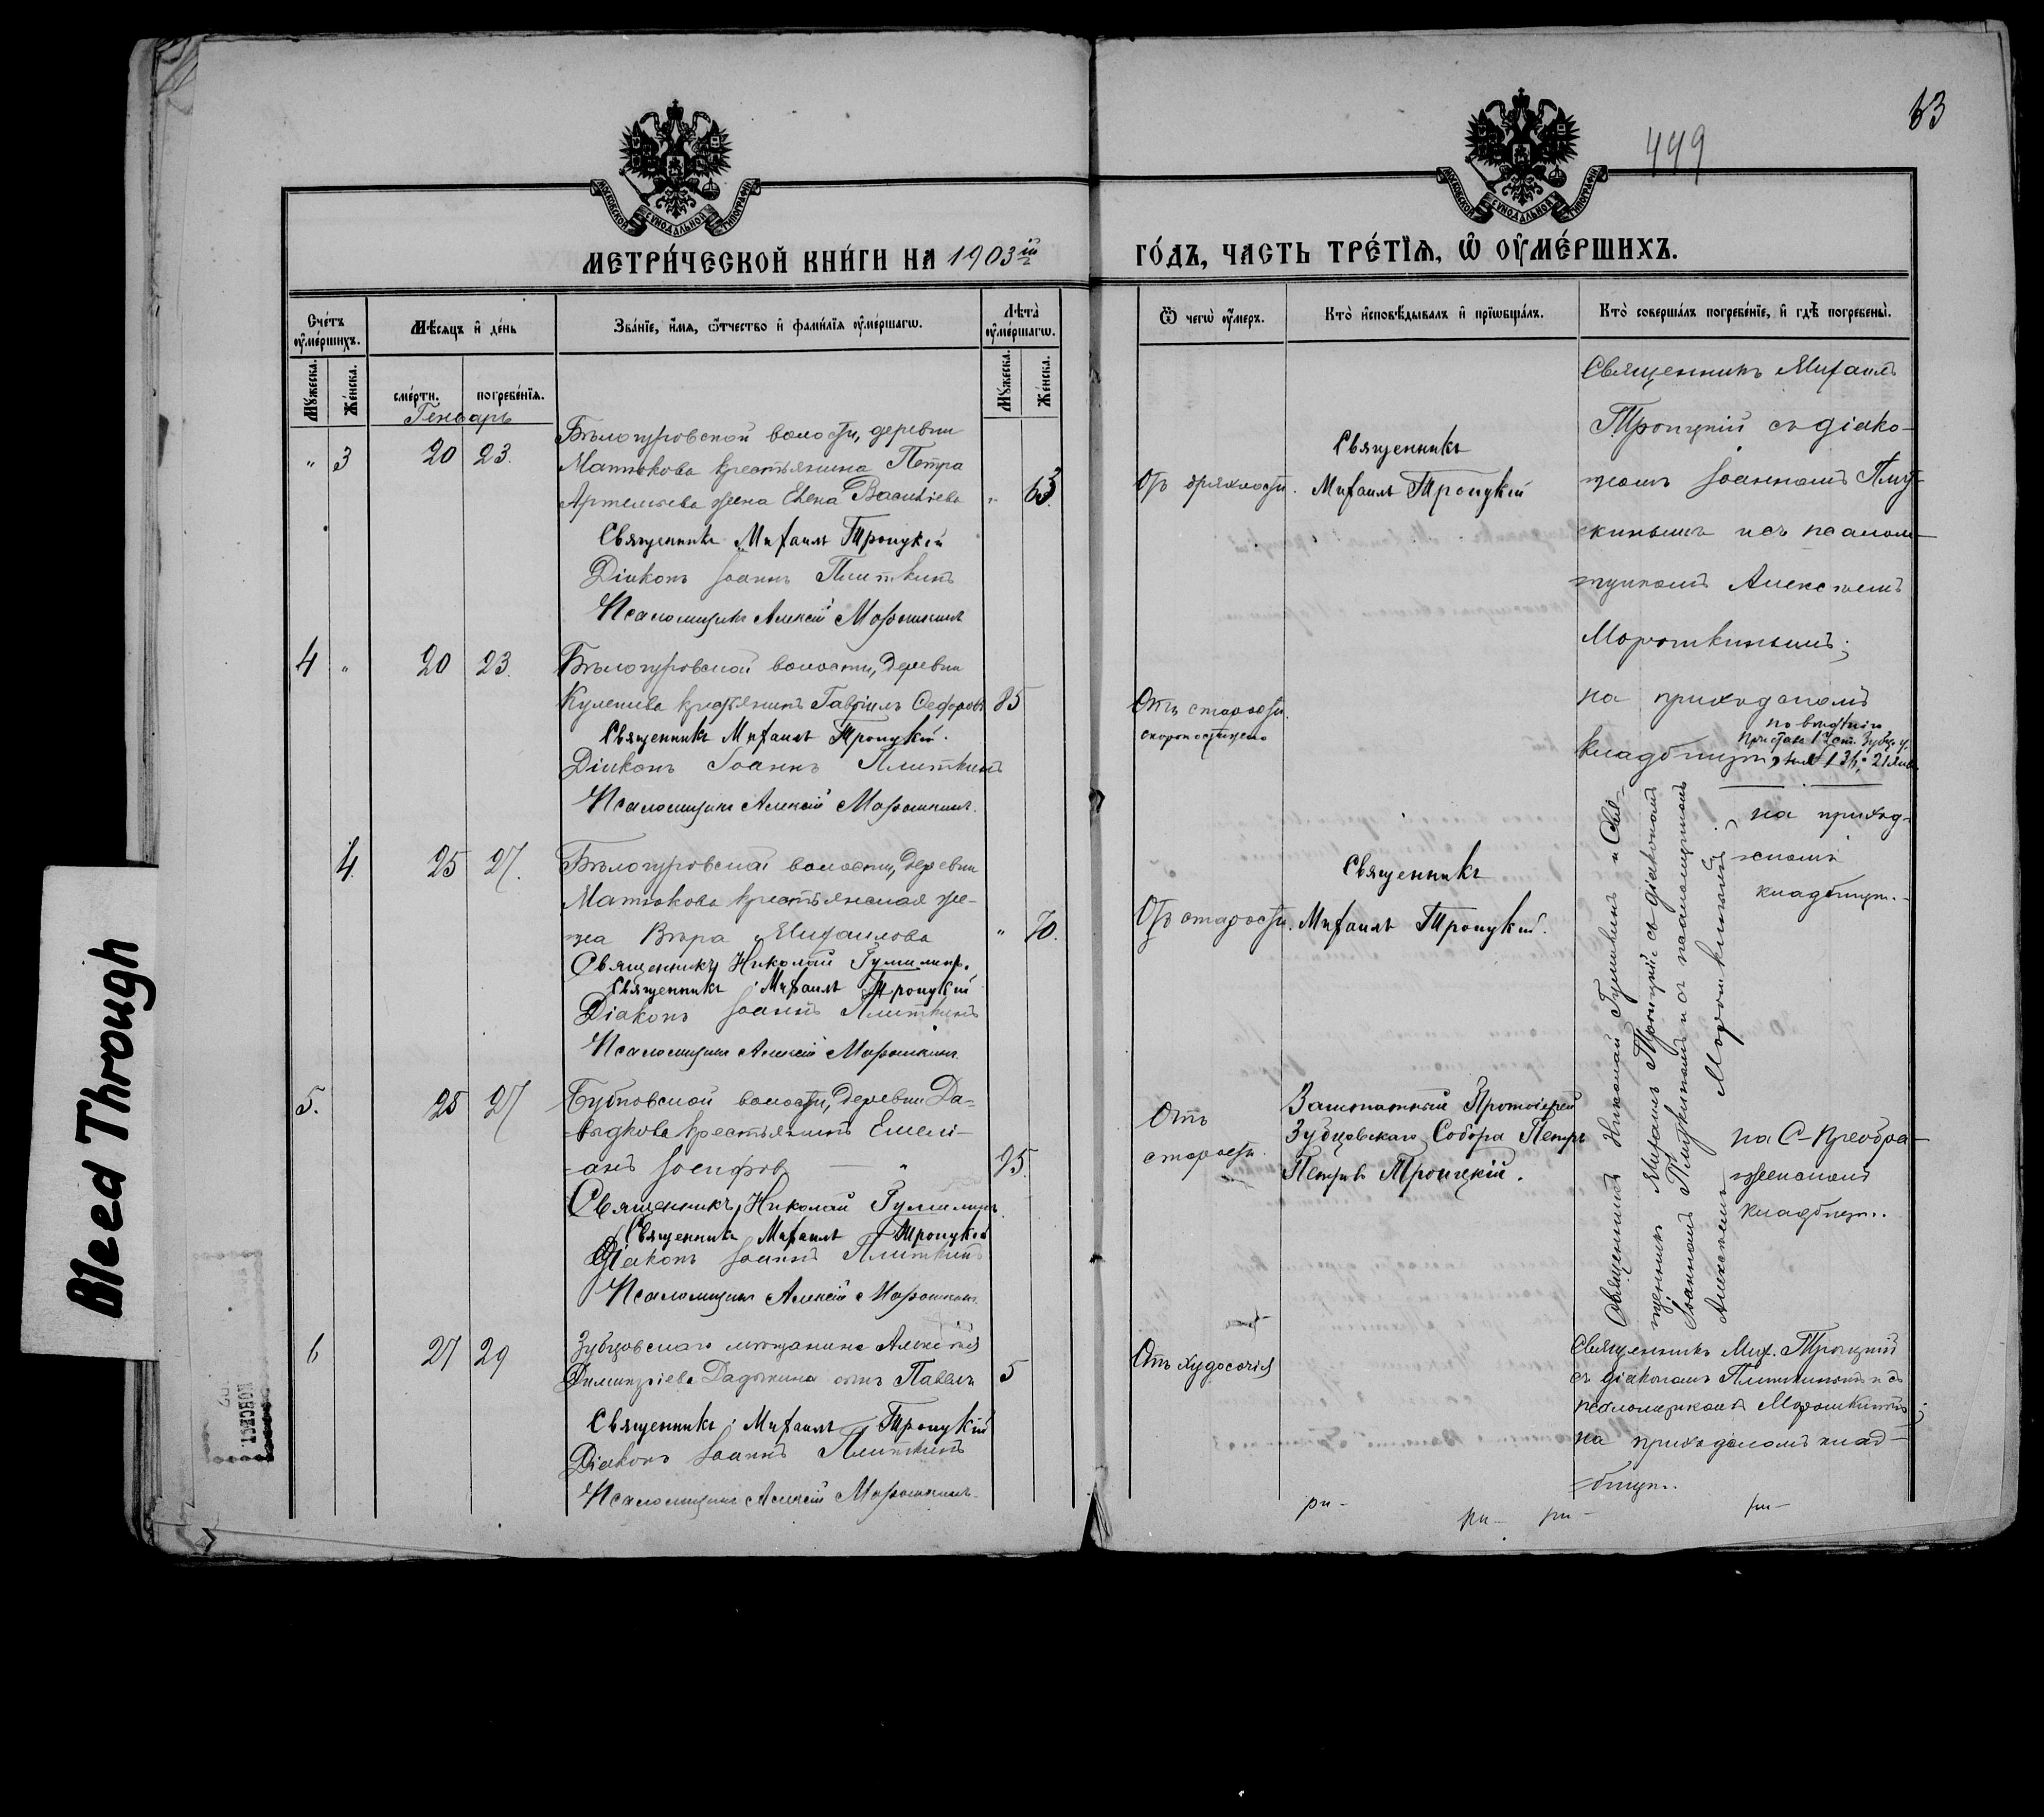 63
449
МОСКОВСКОЙ СѴНОДАЛЬНОЙ ТИПОГРАФІИ
МОСКОВСКОЙ СѴНОДАЛЬНОЙ ТИПОГРАФІИ
МЕТРИ́ЧЕСКОЙ КНИ́ГИ НА 1903 ій
ГО́ДЪ, ЧАСТЬ ТРЕ́ТЇѦ, Ѡ҆ ОУ҆МЕ́РШИХЪ.
Сче́тъ оу҆ме́ршихъ.
Мѣ́сѧцъ и҆ де́нь
Зва́нїе, и҆́мѧ, ѻ҆́тчество и҆ фами́лїѧ оу҆ме́ршагѡ.
Лѣ́та оу҆ме́ршагѡ.
Ѿ чегѡ̀ оу҆́меръ.
Кто̀ и҆сповѣ́дывалъ и҆ прїѡбща́лъ.
Кто̀ соверша́лъ погребе́нїе, и҆ гдѣ̀ погребены̀.
Мꙋ́жеска.
Же́нска.
сме́рти.
погребе́нїѧ.
Мꙋ́жеска.
Же́нска.
Генварь
" 3 20 23.
Бѣлогуровской волости, деревни
Матюкова крестьянина Петра
Артемьева жена Елена Васильева " 63
Священникъ Михаилъ Троицкій
Діаконъ Іоаннъ Плиткинъ
Псаломщикъ Алексій Морошкинъ
Отъ дряхлости.
Священникъ
Михаилъ Троицкій
Священникъ Михаилъ
Троицкій съ діако-
номъ Іоанномъ Плит-
кинымъ и съ псалом-
щикомъ Алексѣемъ
Морошкинымъ;
на приходскомъ
кладбищѣ,
4 " 20 23.
Бѣлогуровской волости, деревни
крестьянинъ Гавріилъ Ѳедоровъ 85
Священникъ Михаилъ Троицкій.
Діаконъ Іоаннъ Плиткинъ
Псаломщикъ Алексій Морошкинъ.
Отъ старости.
скоропостижно
4. 25 27.
Бѣлогуровской волости, деревни
Матюкова крестьянская же-
на Вѣра Михаилова " 70.
Священникъ Николай Гумилинъ.
Священникъ Михаилъ Троицкій
Діаконъ Іоаннъ Плиткинъ
Псаломщикъ Алексій Морошкинъ.
Отъ старости.
Священникъ
Михаилъ Троицкій.
Священникъ Николай Гумилинъ и Свя-
щенникъ Михаилъ Троицкій съ діакономъ
Іоанномъ Плиткинымъ и съ псаломщикомъ
Алексѣемъ Морошкинымъ;
на приход-
скомъ
кладбищѣ.
5. 25 27
Бубновской волости, деревни Да-
выдкова крестьянинъ Емелі-
анъ Іосифовъ " 95.
Священникъ Николай Гумилинъ.
Священникъ Михаилъ Троицкій
Діаконъ Іоаннъ Плиткинъ
Псаломщикъ Алексій Морошкинъ.
Отъ
старости.
Заштатный Протоіерей
Зубцовскаго Собора Петръ
Петровъ Троицкій.
на С-Преобра-
женскомъ
кладбищѣ.
6 27 29
Зубцовскаго мѣщанина Алексѣя
Димитріева Дадыкина сынъ Павелъ 5
Священникъ Михаилъ Троицкій
Діаконъ Іоаннъ Плиткинъ
Псаломщикъ Алексій Морошкинъ.
Отъ худосочія
Священникъ Мих. Троицкій
съ діакономъ Плиткинымъ и съ
псаломщикомъ Морошкинымъ;
на приходскомъ клад-
бищѣ.
ри-
ри-
ри-
ри-
Bleed Through